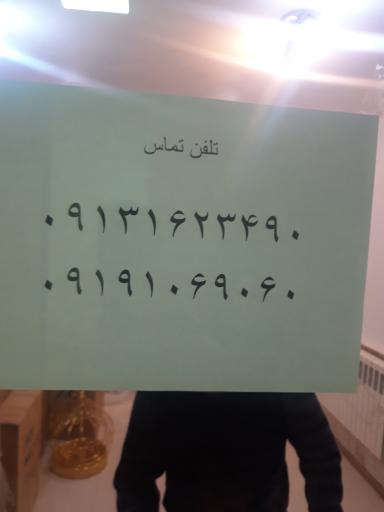 تلفن تماس
۰۹۱۳۱۶۲۳۴۹۰
۰۹۱۹۱۰۶۹۰۶۰